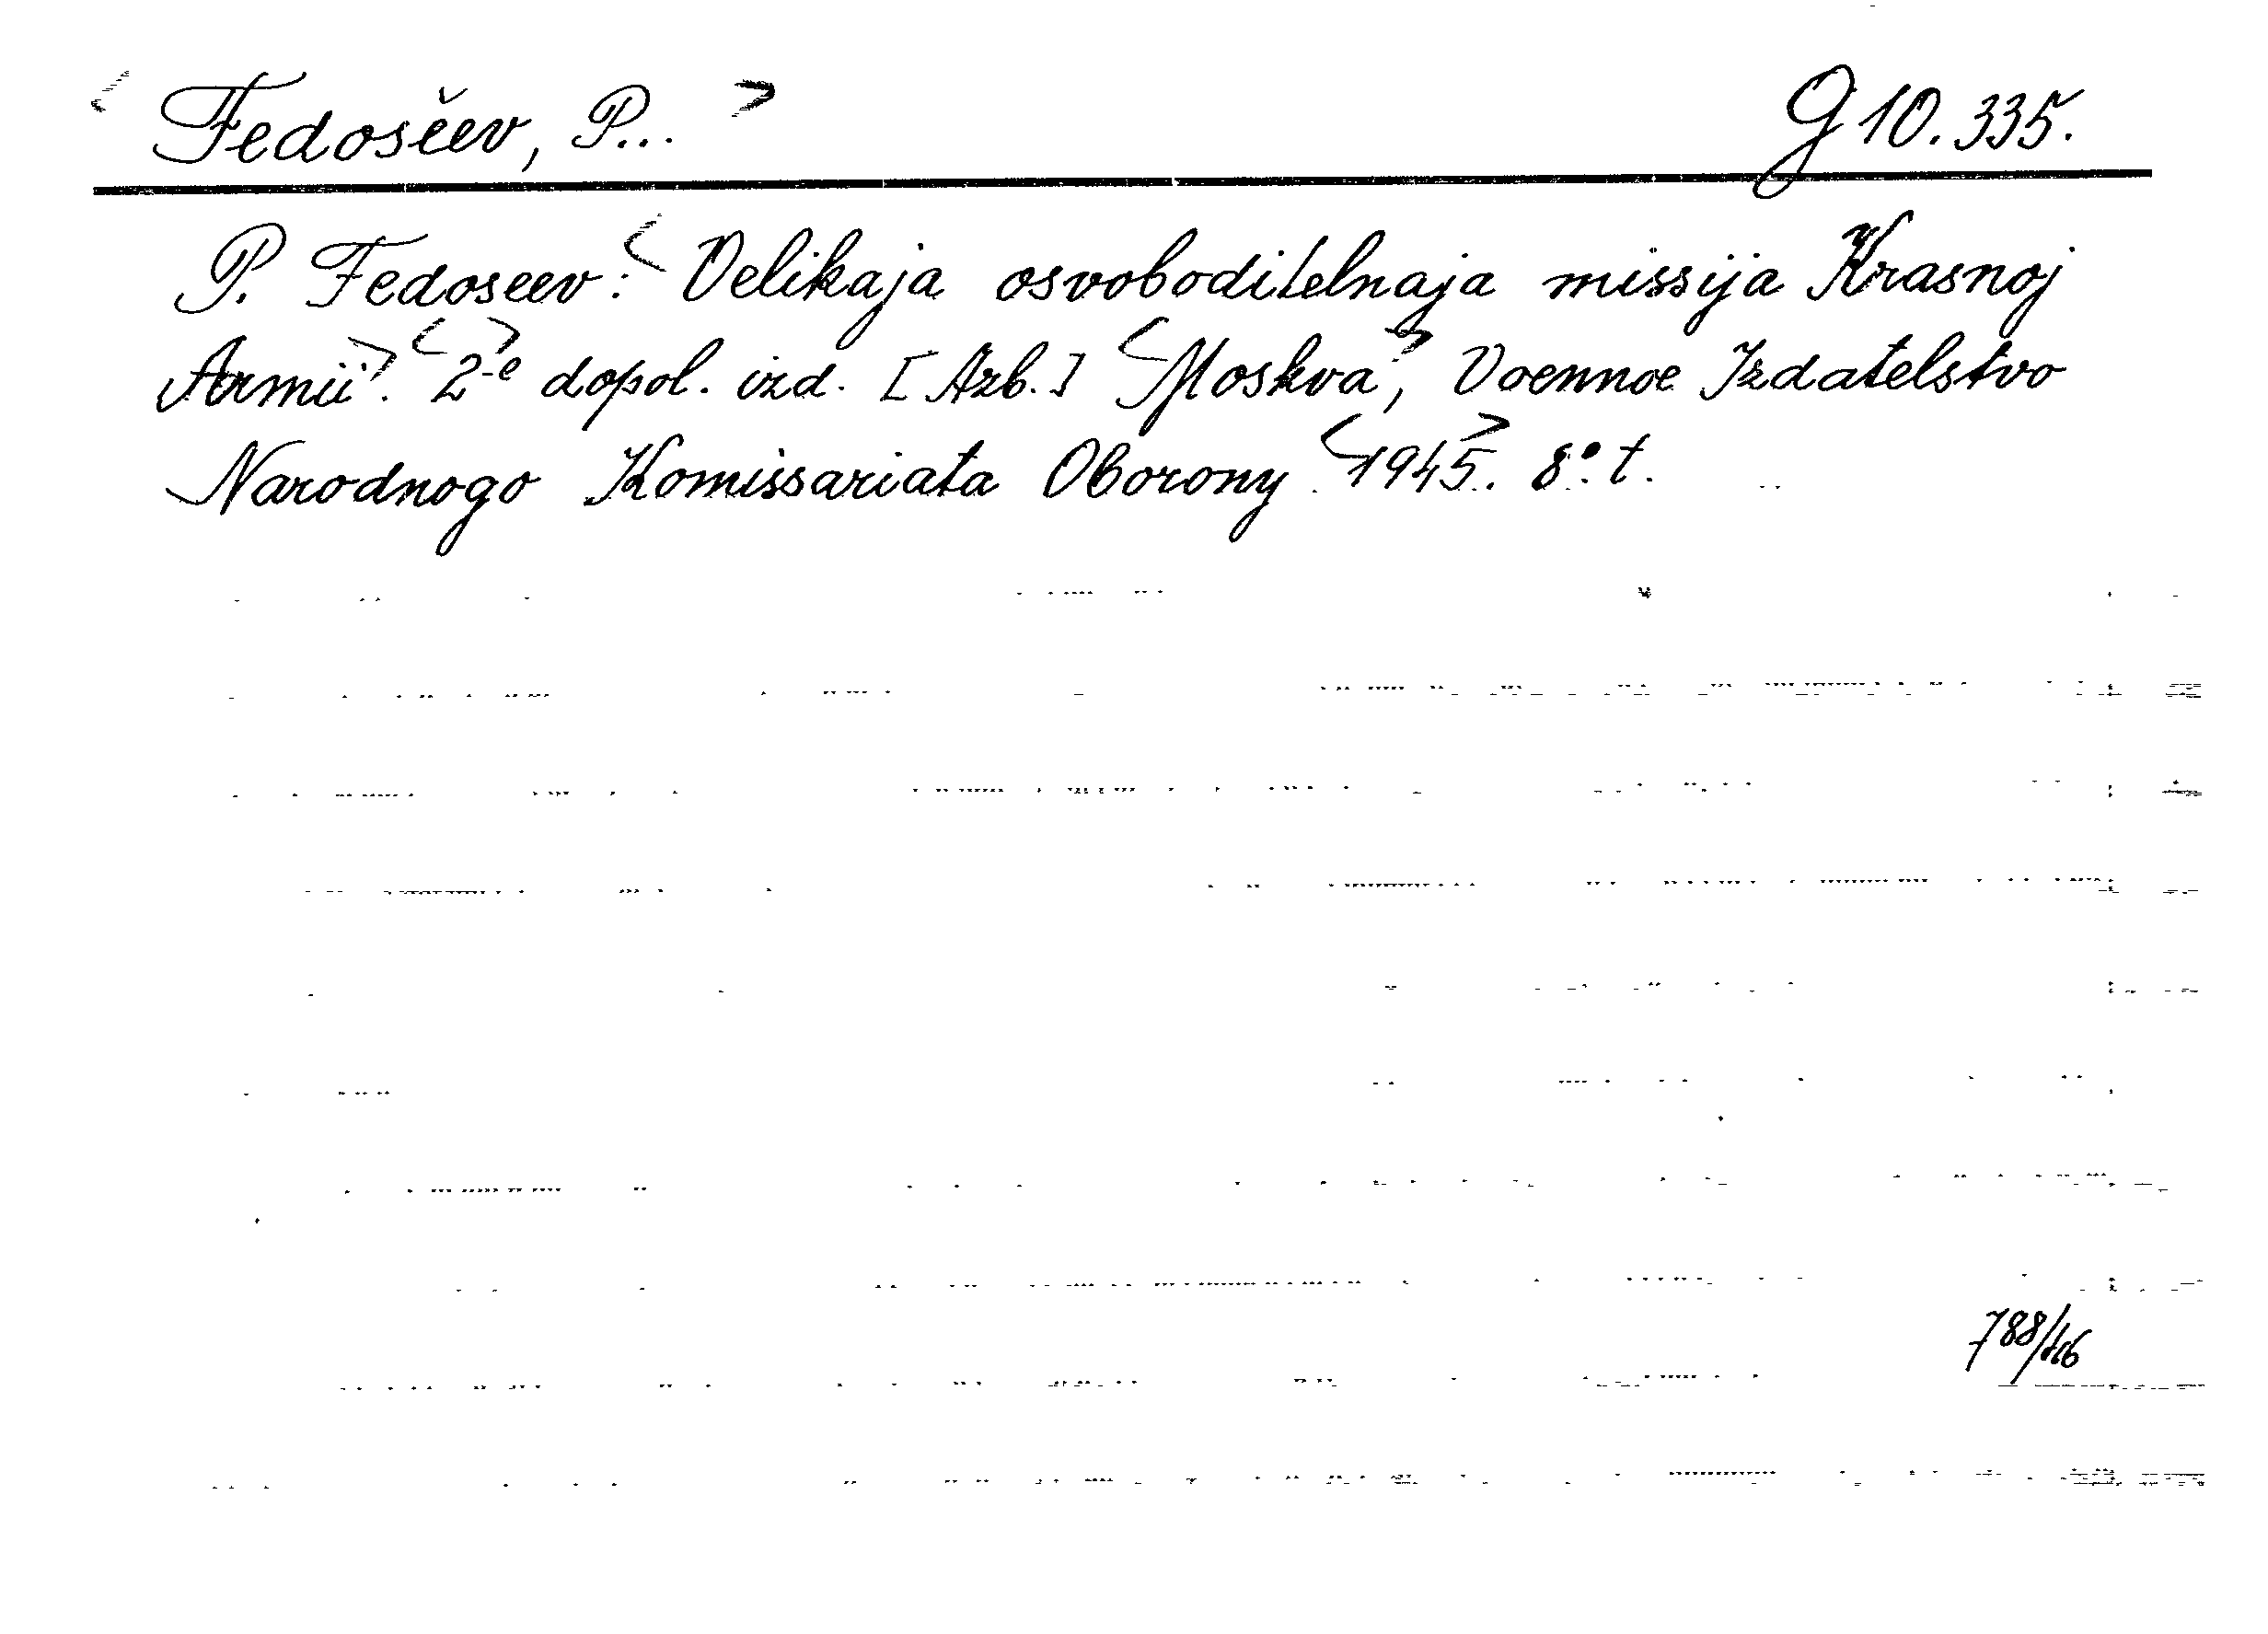 < Fedosěev, P... > G 10.335.
P. Fedoseev: < Velikaja osvoboditelnaja missija Krasnoj
Armii >. < 2-e > dopol. izd. [Azb.] < Moskva >, Voennoe Izdatelstvo
Narodnogo Komissariata Oborony < 1945 >. 8° t.
788/46